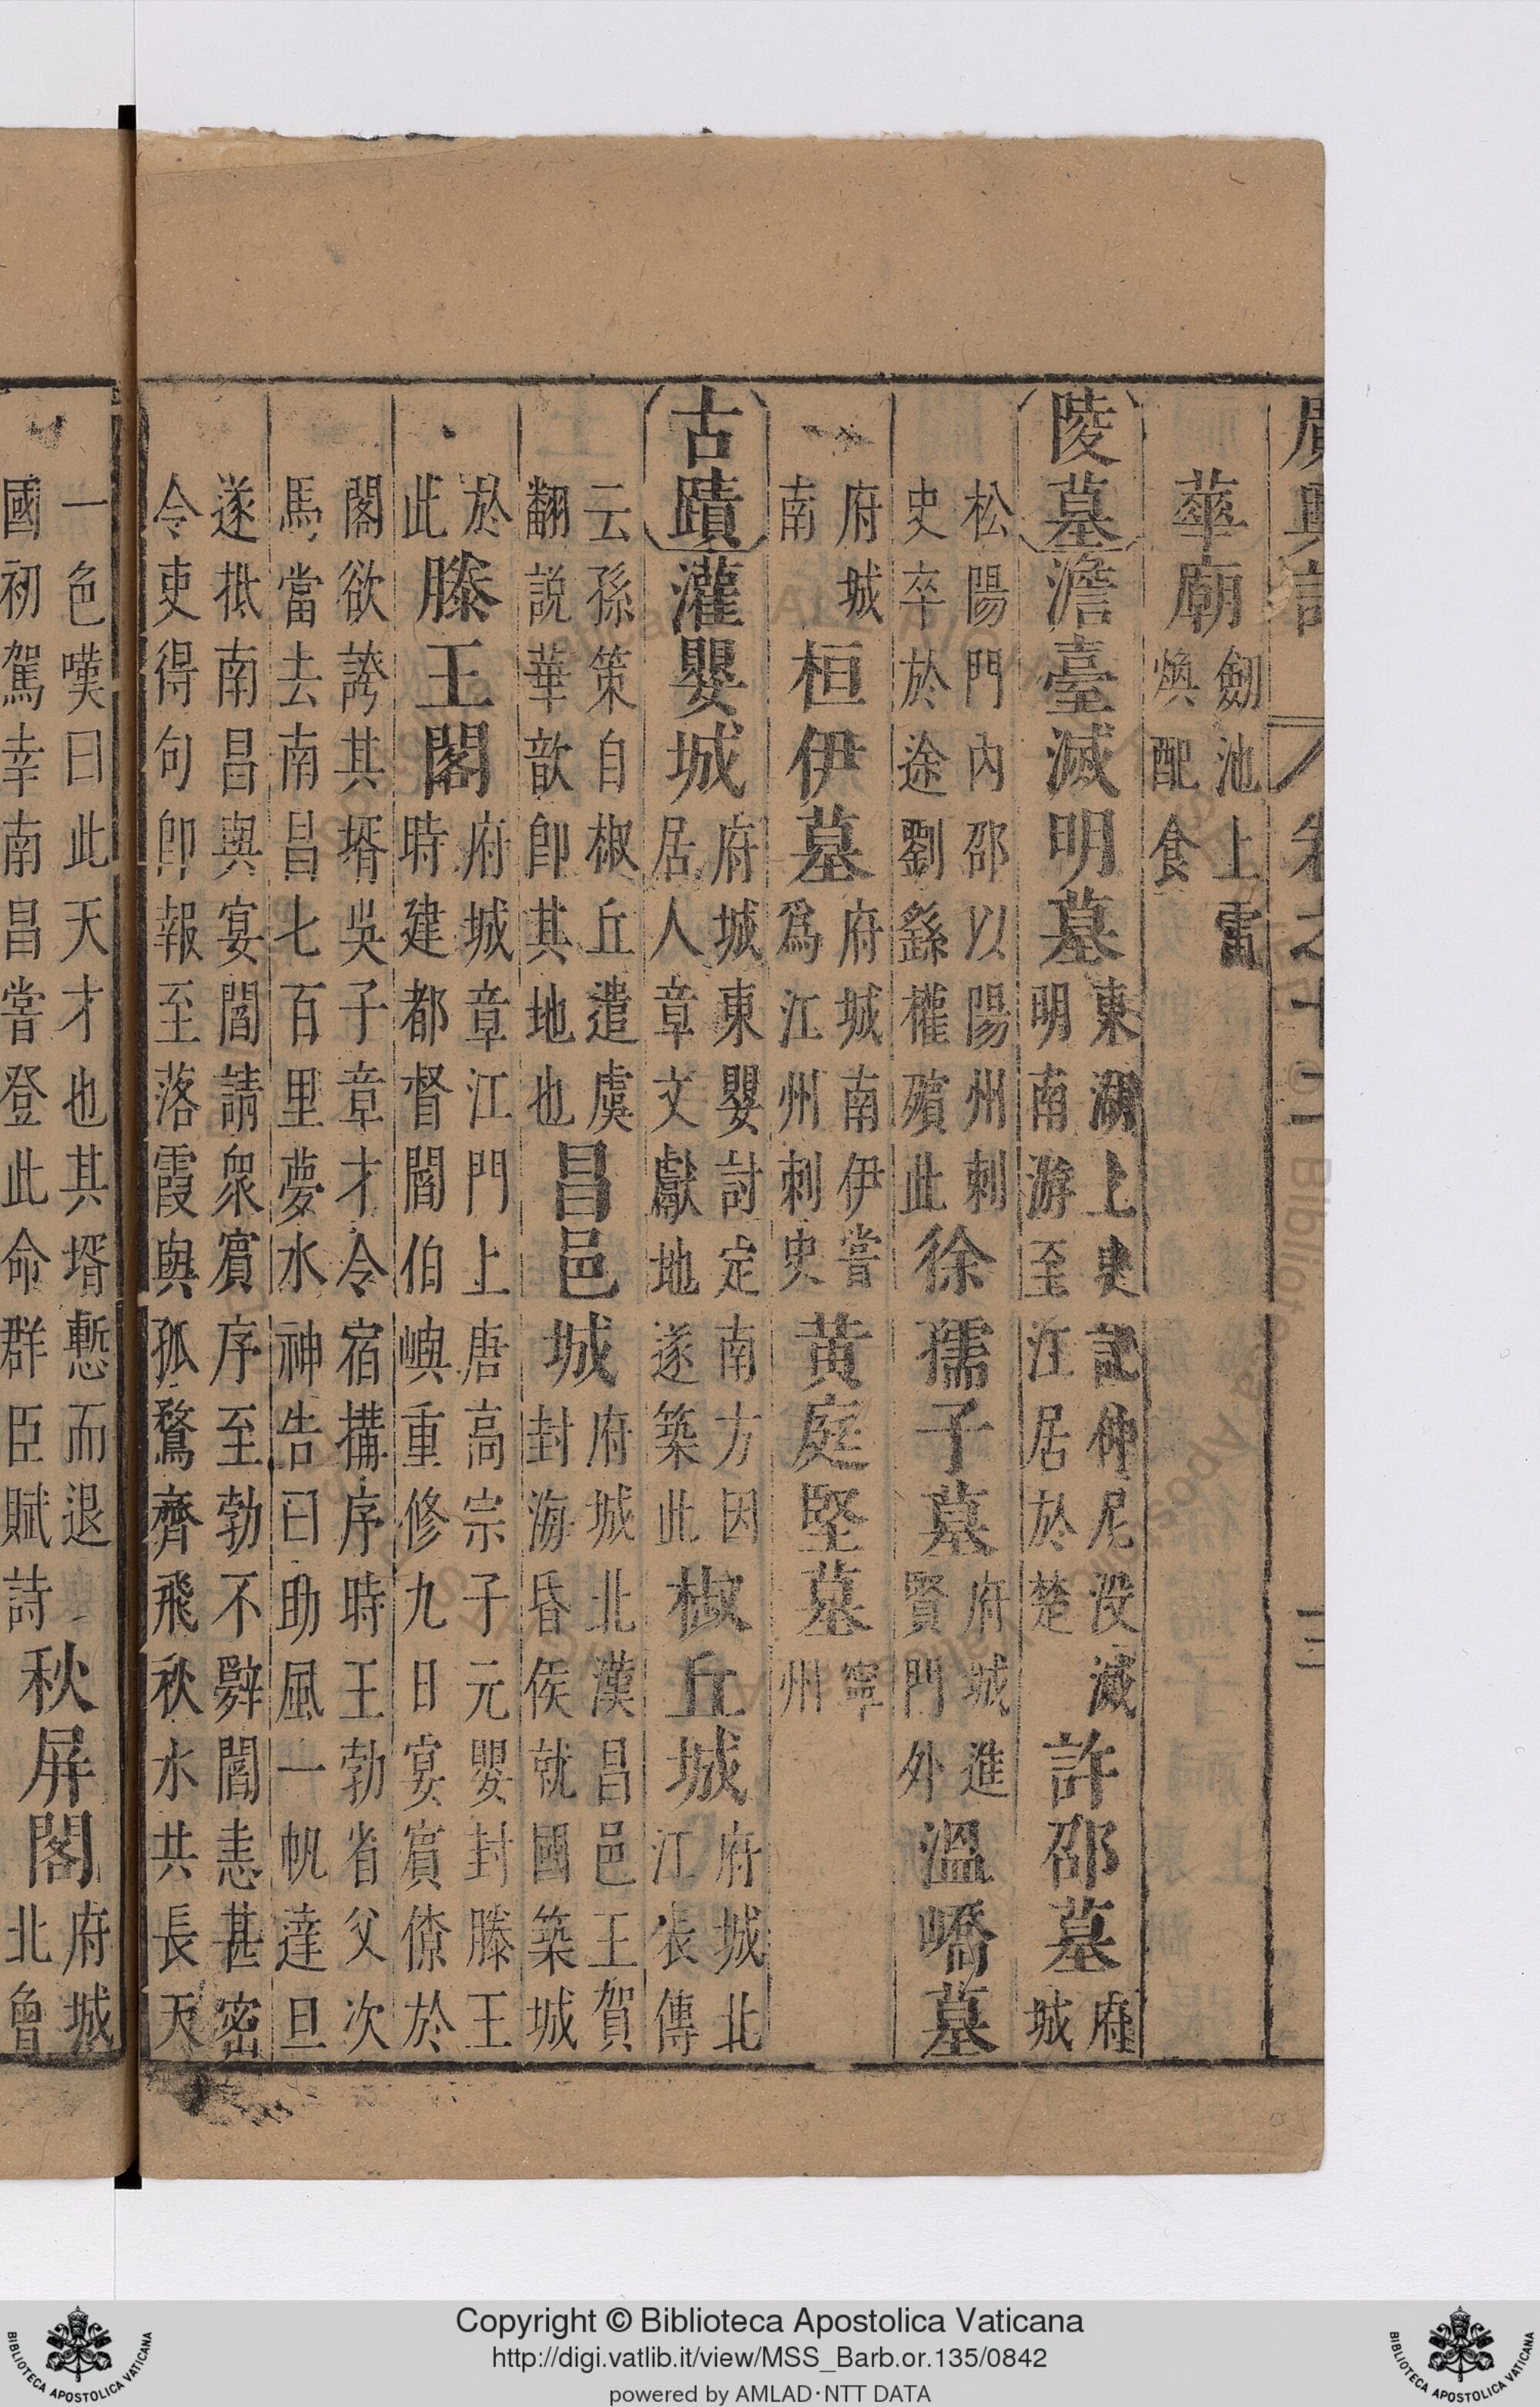 廣輿記 卷之十二 三
華廟
劍池上雷
煥配食
陵墓
澹臺滅明墓
東湖上史記仲尼没滅
明南游至江居於楚
許邵墓
府城
松陽門內邵以陽州刺
史卒於途劉繇權殯此
徐孺子墓
府城進
賢門外
溫嶠墓
府城
南
桓伊墓
府城南伊嘗
爲江州刺史
黄庭堅墓
寧
州
古蹟
灌嬰城
府城東嬰討定南方因
居人章文獻地遂築此
椒丘城
府城北
江表傳
云孫策自椒丘遣虞
翻説華歆卽其地也
昌邑城
府城北漢昌邑王賀
封海昏侯就國築城
於
此
滕王閣
府城章江門上唐高宗子元嬰封滕王
時建都督閻伯嶼重修九日宴賓僚於
閣欲誇其壻吳子章才令宿搆序時王勃省父次
馬當去南昌七百里夢水神告曰助風一帆達旦
遂抵南昌與宴閻請衆賓序至勃不辭閻恚甚密
令吏得句卽報至落霞與孤鶩齊飛秋水共長天
一色嘆曰此天才也其壻慙而退
國初駕幸南昌嘗登此命群臣賦詩
秋屏閣
府城
北曾
Copyright © Biblioteca Apostolica Vaticana
http://digi.vatlib.it/view/MSS_Barb.or.135/0842
powered by AMLAD·NTT DATA
BIBLIOTECA APOSTOLICA VATICANA
BIBLIOTECA APOSTOLICA VATICANA